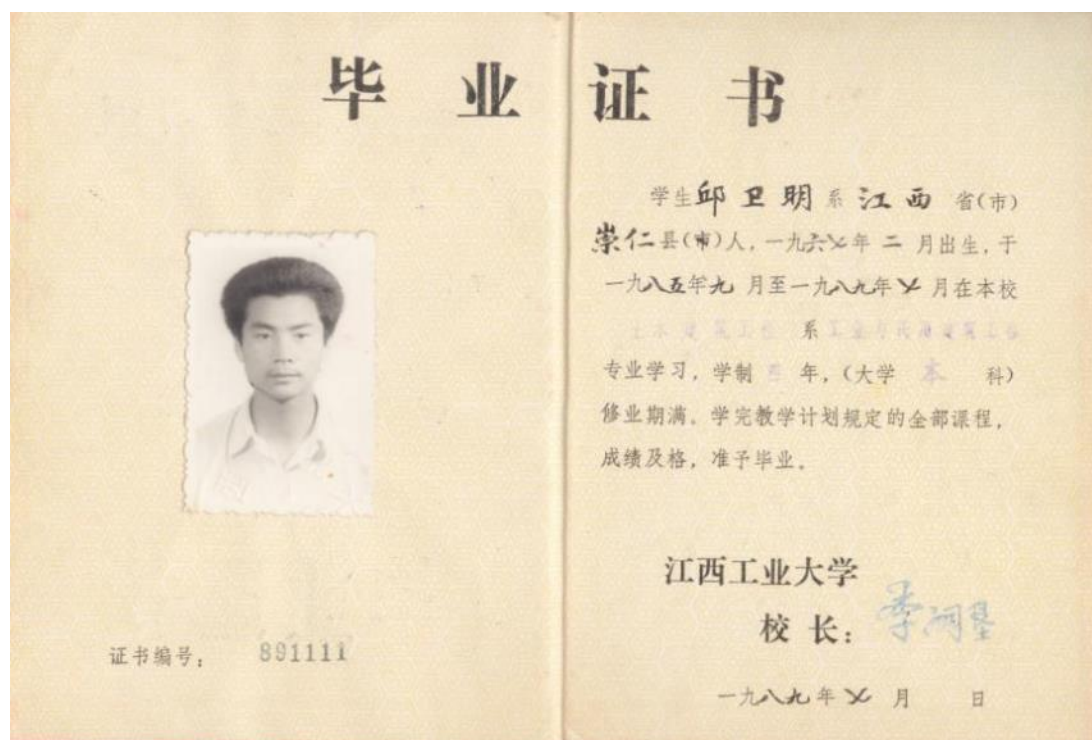 毕业证书
学生邱卫明系江西省(市)
崇仁县(市)人，一九六七年二月出生，于
一九八五年九月至一九八九年七月在本校
土木建筑工程系工业与民用建筑工程
专业学习，学制四年，(大学本科)
修业期满。学完教学计划规定的全部课程，
成绩及格，准予毕业。
江西工业大学
校长：
一九八九年七月 日
证书编号：891111